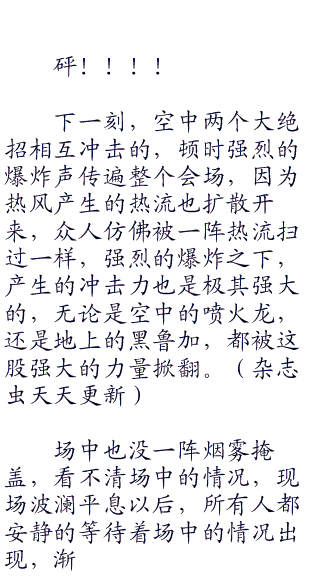 砰！！！！
下一刻，空中两个大绝
招相互冲击的，顿时强烈的
爆炸声传遍整个会场，因为
热风产生的热流也扩散开
来，众人仿佛被一阵热流扫
过一样，强烈的爆炸之下，
产生的冲击力也是极其强大
的，无论是空中的喷火龙，
还是地上的黑鲁加，都被这
股强大的力量掀翻。（杂志
虫天天更新）
场中也没一阵烟雾掩
盖，看不清场中的情况，现
场波澜平息以后，所有人都
安静的等待着场中的情况出
现，渐